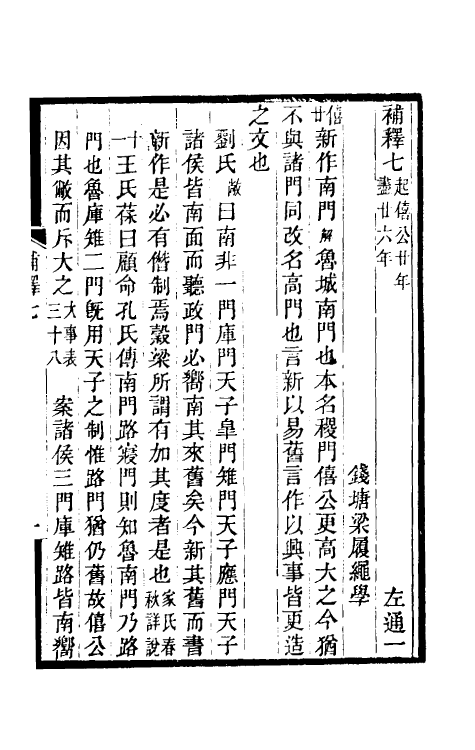 補釋七 起僖公廿年 盡廿六年 左通一
錢塘梁履繩學
僖廿新作南門 解 魯城南門也本名稷門僖公更高大之今猶
不與諸門同改名高門也言新以易舊言作以興事皆更造
之文也
劉氏 敞 曰南非一門庫門天子皐門雉門天子應門天子
諸侯皆南面而聽政門必嚮南其來舊矣今新其舊而書
新作是必有僭制焉穀梁所謂有加其度者是也 家氏春秋詳說
十一 王氏葆曰顧命孔氏傳南門路寢門則知魯南門乃路
門也魯庫雉二門旣用天子之制惟路門猶仍舊故僖公
因其敝而斥大之 大事表三十八 案諸侯三門庫雉路皆南嚮
補釋七
一